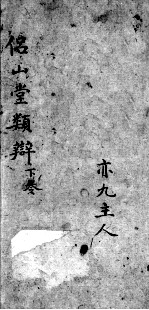 侶山堂類辯下卷
亦九主人